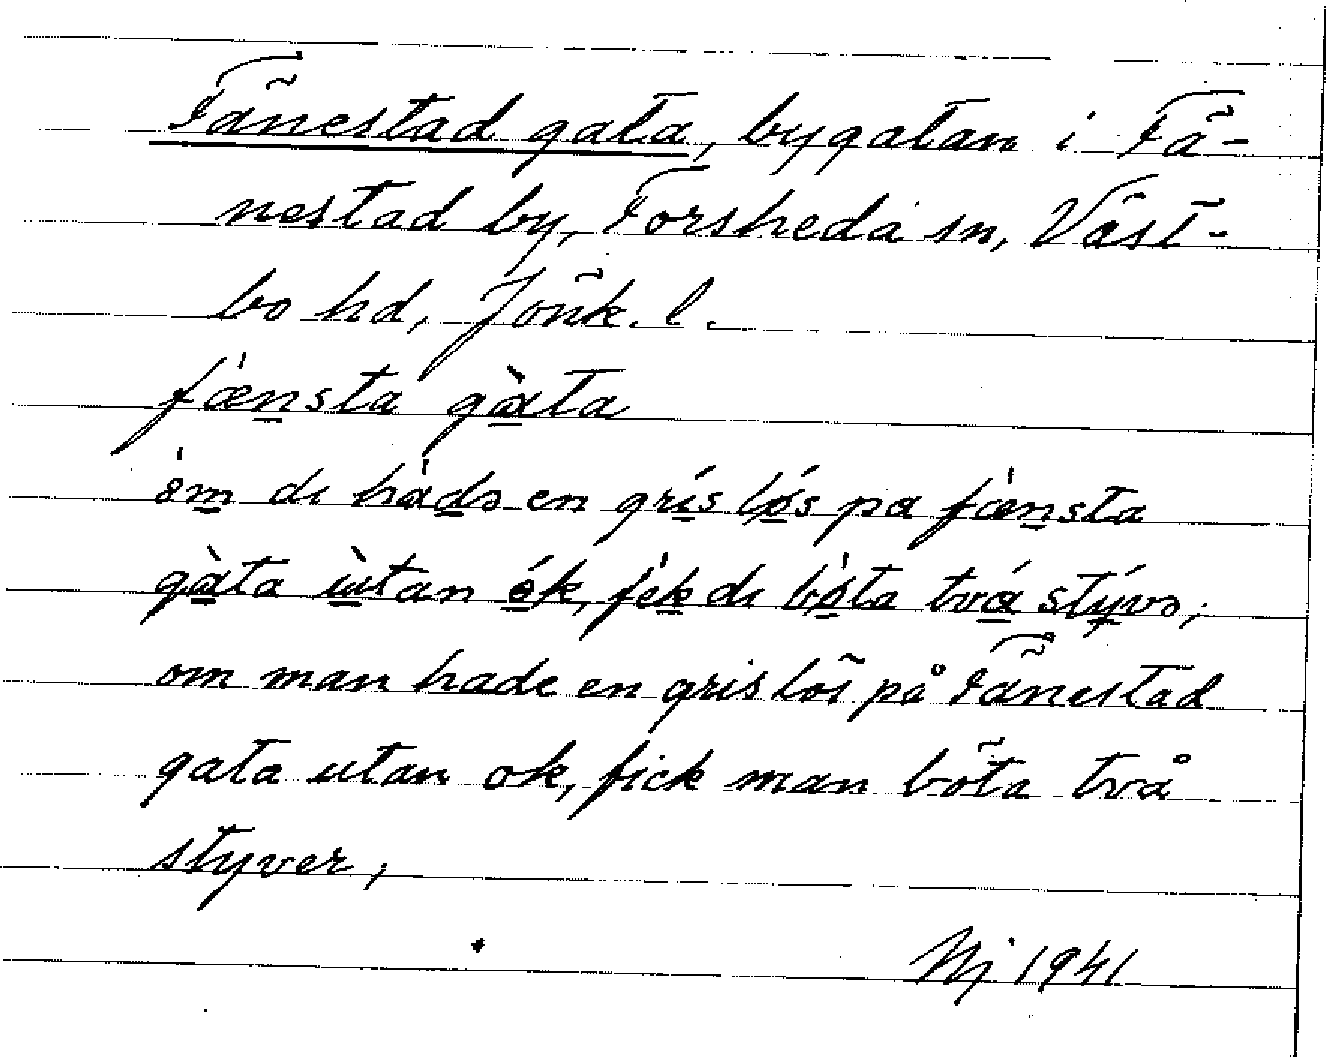 Fänestad gata, bygatan i Fä-
nestad by, Forsheda sn, Väst-
bo hd, Jönk. l.
fæ̀nsta gàta
òm di hàdə en grís lǿs pa fæ̀nsta
gàta ùtan ók, fèk di bǿta tvǻ stývə,
om man hade en gris lös på Fänestad
gata utan ok, fick man böta två
styver,
Nj 1941